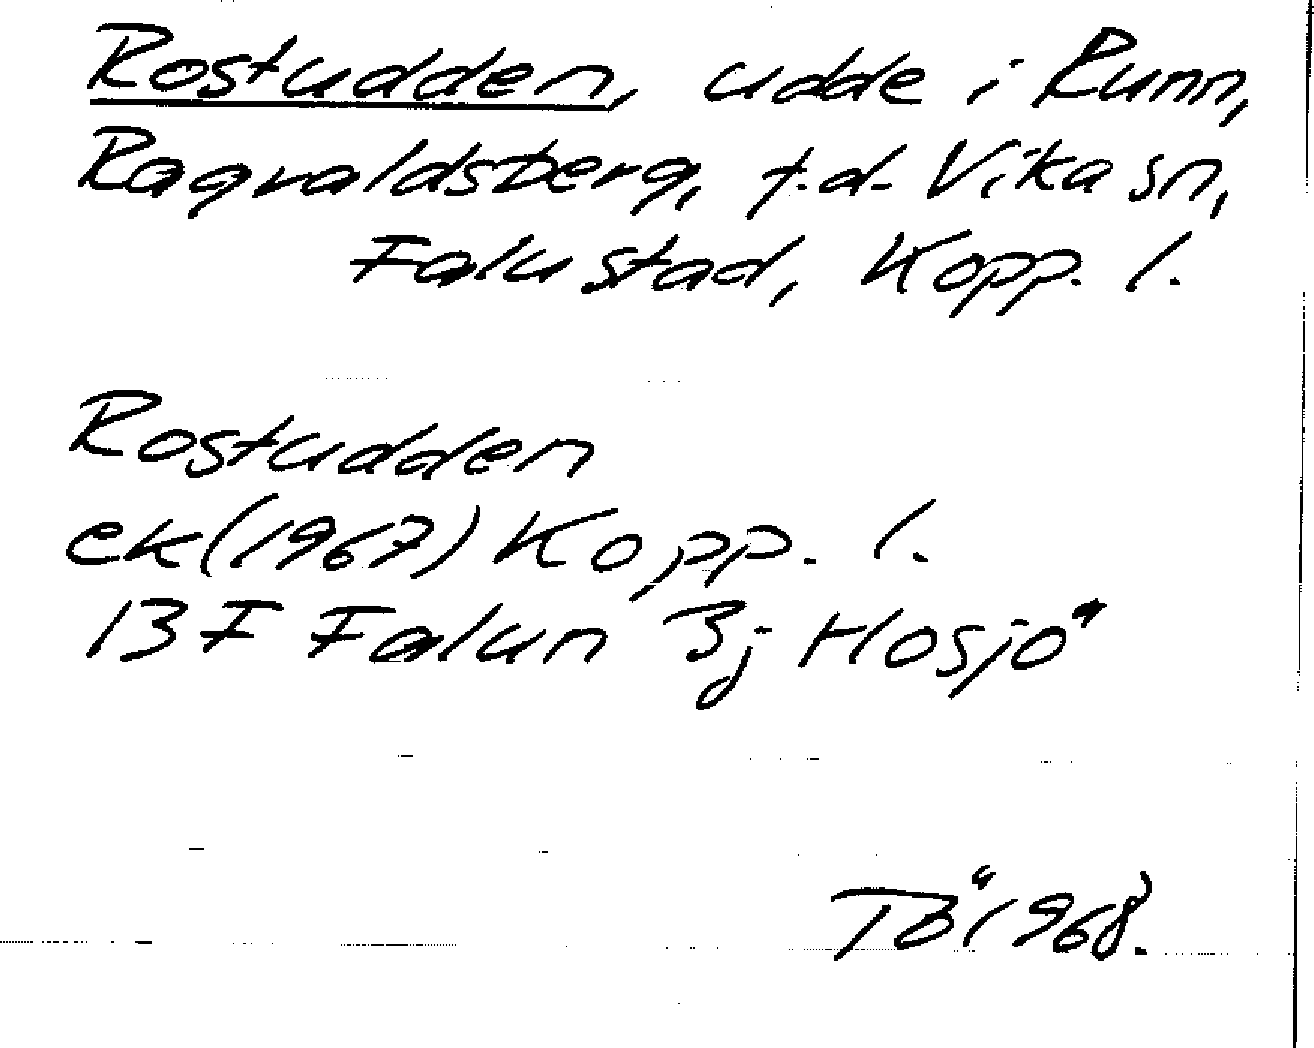 Rostudden, udde i Runn,
Ragvaldsberg, f.d. Vika sn,
Falu stad, Kopp. l.
Rostudden
ek (1967) Kopp. l.
13 F Falun 3j Hosjö
TÖ 1968.